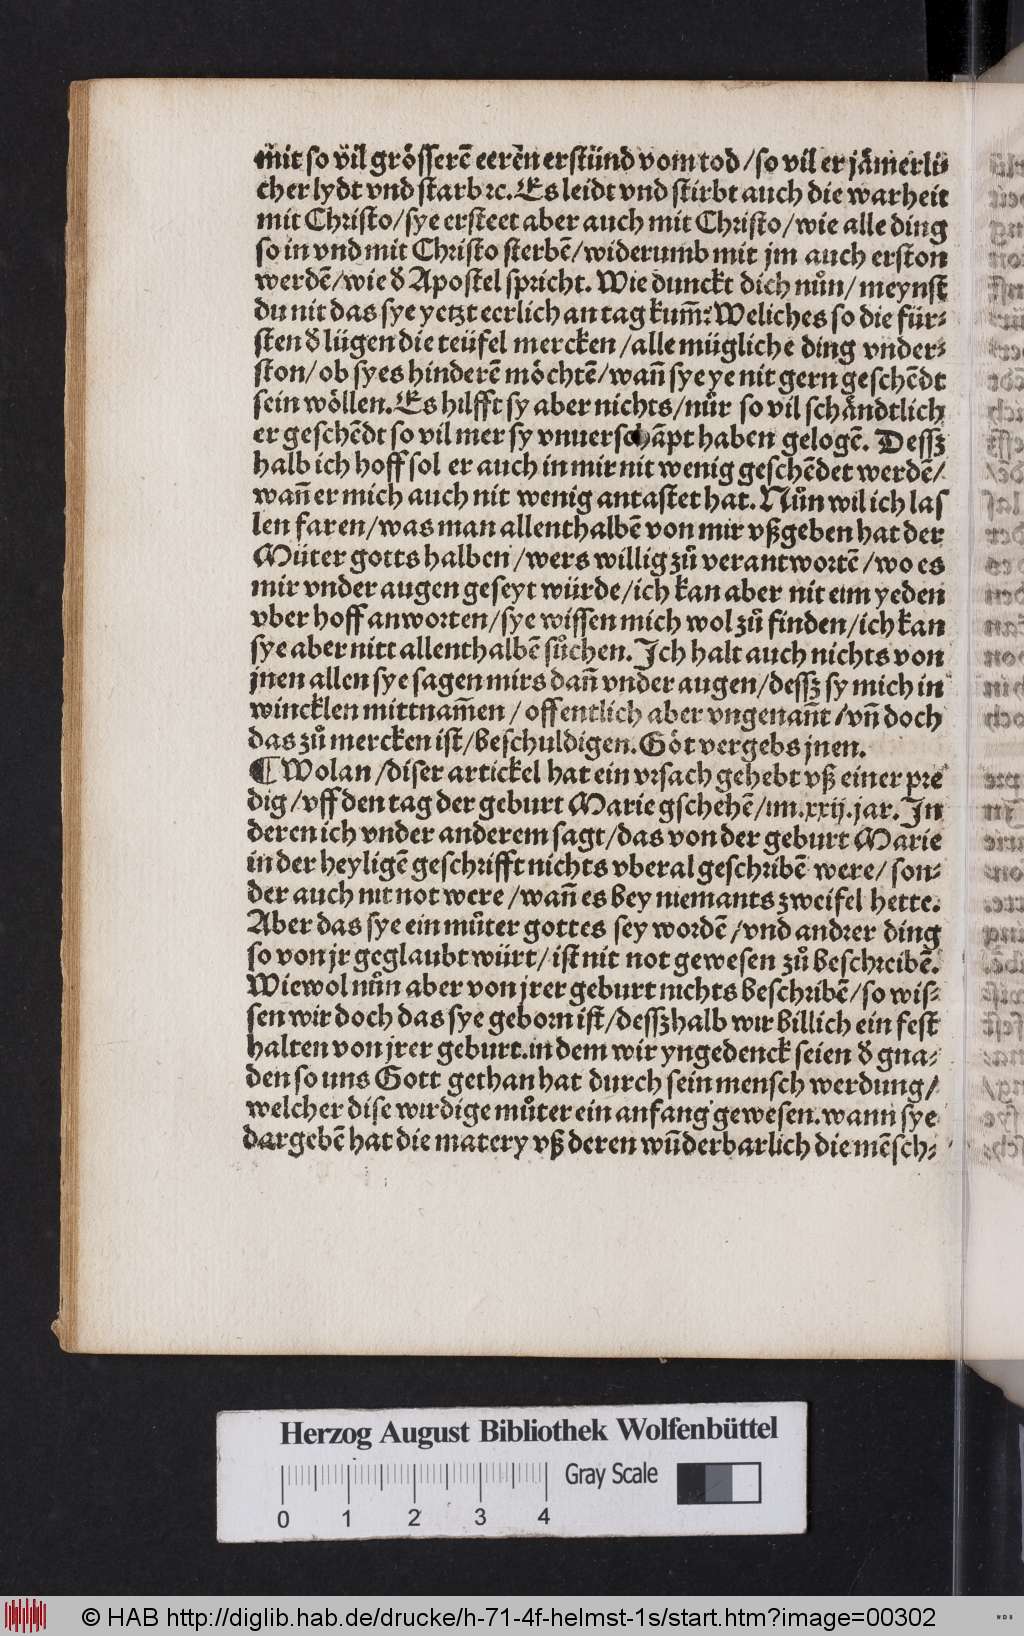 mit so vil grösserē eerēn erstünd vom tod / so vil er jämerli⸗
cher lydt vnd starb ꝛc. Es leidt vnd stirbt auch die warheit
mit Christo / sye ersteet aber auch mit Christo / wie alle ding
so in vnd mit Christo sterbē / widerumb mit jm auch erston
werdē / wie d̕ Apostel spricht. Wie dunckt dich nůn / meynst
du nit das sye yetzt eerlich an tag kum̄? Weliches so die für⸗
sten d̕ lügen die teüfel mercken / alle mügliche ding vnder⸗
ston / ob syes hinderē möchtē / wan̄ sye ye nit gern geschēdt
sein wöllen. Es hilfft sy aber nichts / nůr so vil schändtlich
er geschēdt so vil mer sy vnuerschāpt haben gelogē. Dessz
halb ich hoff sol er auch in mir nit wenig geschēdet werdē /
wan̄ er mich auch nit wenig antastet hat. Nůn wil ich las
len faren / was man allenthalbē von mir vß geben hat der
Můter gotts halben / wers willig zů verantwortē / wo es
mir vnder augen geseyt würde / ich kan aber nit eim yeden
vber hoff anworten / sye wissen mich wol zů finden / ich kan
sye aber nitt allenthalbē sůchen. Ich halt auch nichts von
jnen allen sye sagen mirs dan̄ vnder augen / dessz sy mich in
wincklen mittnam̄en / offentlich aber vngenan̄t / vn̄ doch
das zů mercken ist / beschuldigen. Gŏt vergebs jnen.
¶ Wolan / diser artickel hat ein vrsach gehebt vß einer pre
dig / vff den tag der geburt Marie gschehē / im .xxij. jar. In
deren ich vnder anderem sagt / das von der geburt Marie
in der heyligē geschrifft nichts vberal geschribē were / son⸗
der auch nit not were / wan̄ es bey niemants zweifel hette.
Aber das sye ein můter gottes sey wordē / vnd andrer ding
so von jr geglaubt würt / ist nit not gewesen zů beschreibē.
Wiewol nůn aber von jrer geburt nichts beschribē / so wis⸗
sen wir doch das sye geborn ist / dessz halb wir billich ein fest
halten von jrer geburt. in dem wir yngedenck seien d̕ gna⸗
den so uns Gott gethan hat durch sein mensch werdung /
welcher dise wirdige můter ein anfang gewesen. wann sye
dargebē hat die matery vß deren wūderbarlich die mēsch⸗
Herzog August Bibliothek Wolfenbüttel
Gray Scale
0 1 2 3 4
© HAB http://diglib.hab.de/drucke/h-71-4f-helmst-1s/start.htm?image=00302